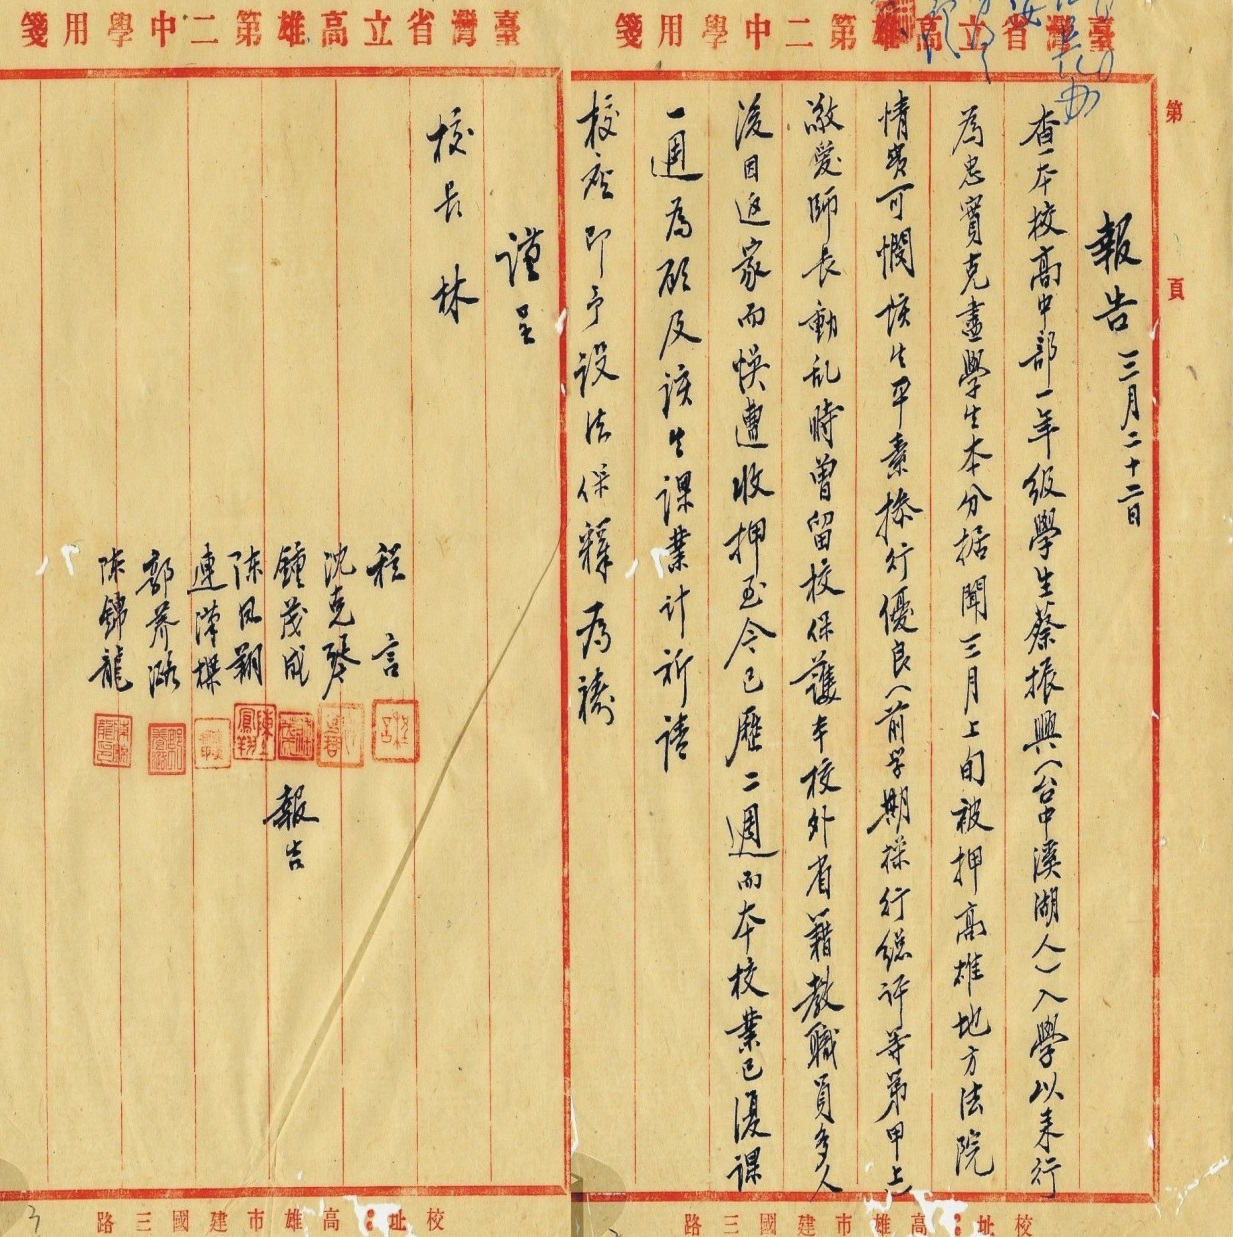 臺灣省立高雄第二中學用箋
第 頁
報告 三月二十二日
查本校高中部一年級學生蔡振興(台中溪湖人)入學以來行
為忠實克盡學生本分据聞三月上旬被押高雄地方法院
情實可憫該生平素操行優良(前学期操行總評等第甲上)
敬愛師長動乱時曾留校保護本校外省籍教職員多人
後因返家而悞遭收押至今已歷二週而本校業已復課
一週為顧及該生課業計祈請
校座即予設法保釋為禱
校址:高雄市建國三路
臺灣省立高雄第二中學用箋
謹呈
校長 林
程言
沈克琴
鍾茂成
陳鳳翱
連漢樑
郭芥潞
陈錦龍
報告
校址:高雄市建國三路
3